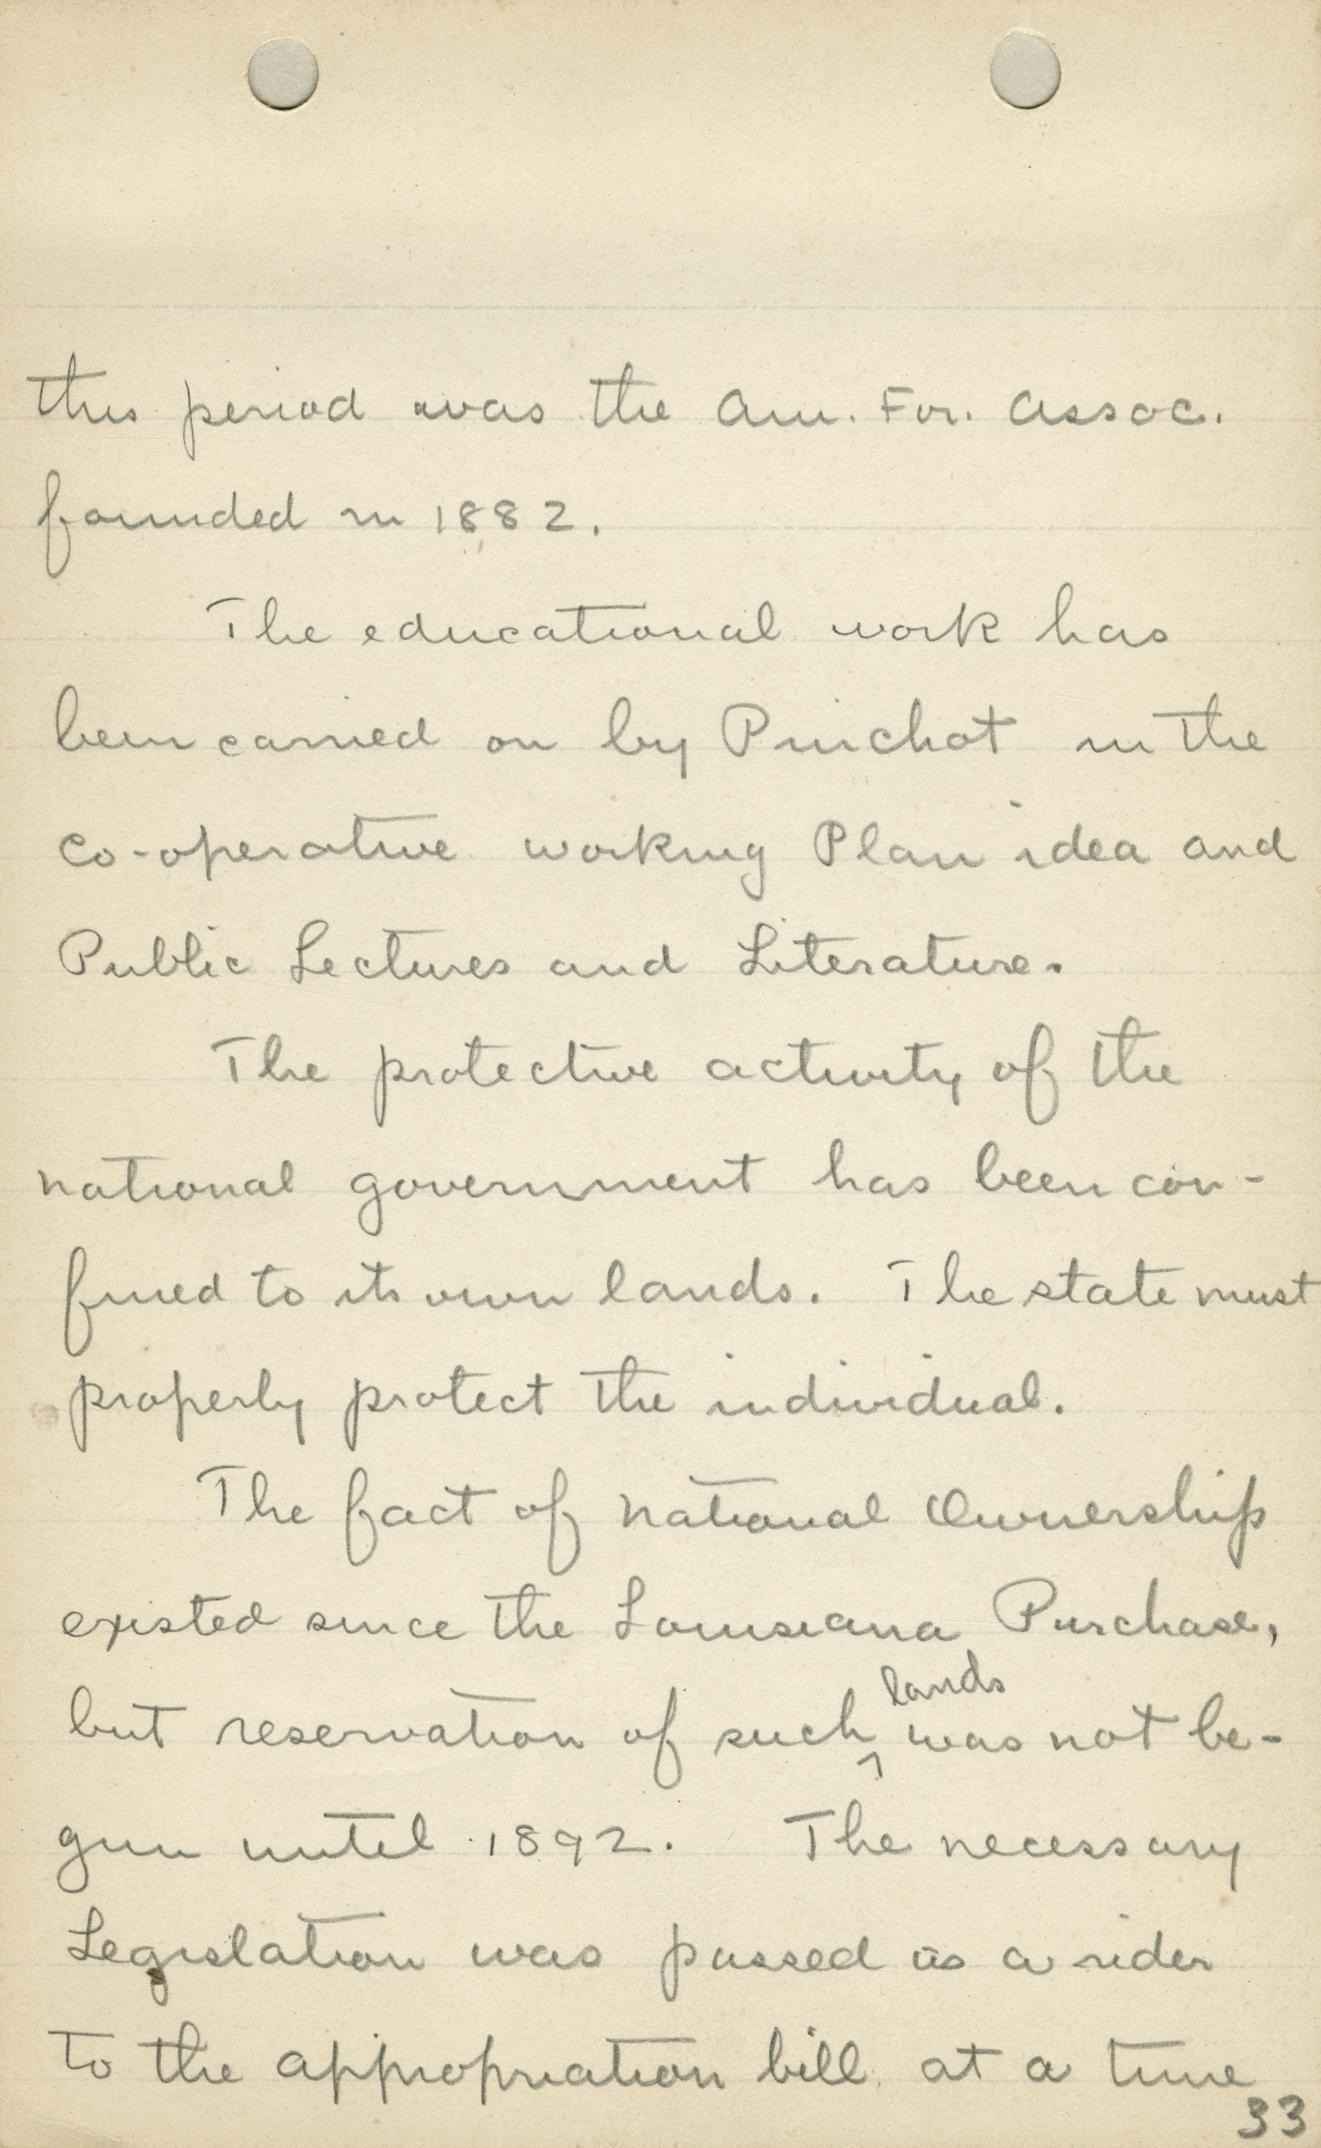 this period was the Am. For. Assoc.
founded in 1882.
The educational work has
been carried on by Pinchot in the
co-operative working Plan idea and
Public Lectures and Literature.
The protective activity of the
national government has been con-
fined to its own lands. The state must
properly protect the individual.
The fact of national Ownership
existed since the Louisiana Purchase,
lands
but reservation of such ^ was not be-
gun until 1892. The necessary
Legislation was passed as a rider
to the appropriation bill at a time
33